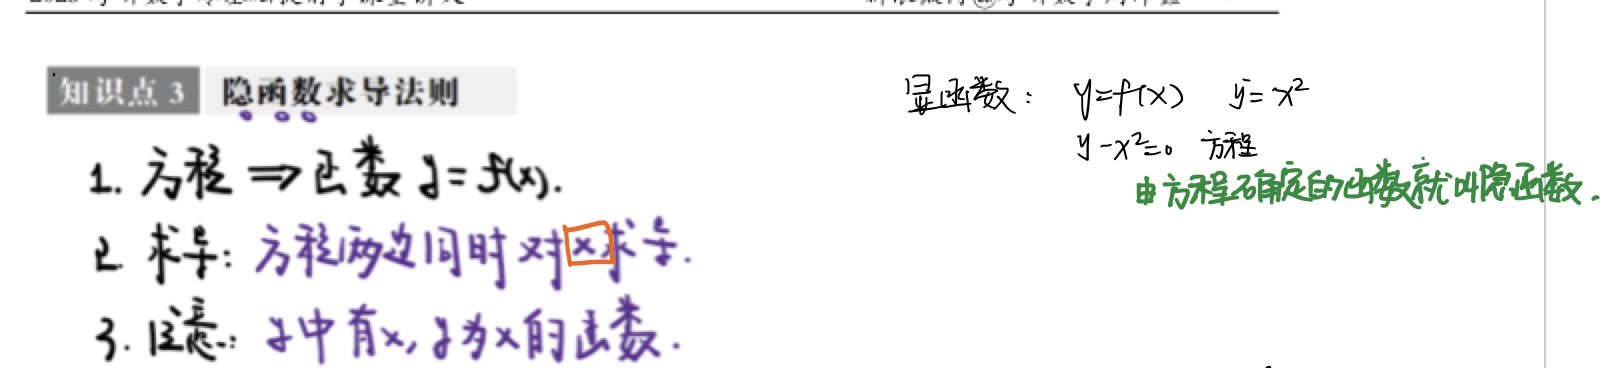 知识点 3 隐函数求导法则
1. 方程 ⇒ 函数 y = f(x).
2. 求导: 方程两边同时对x求导.
3. 注意: y中有x, y为x的函数.
显函数: y=f(x) y=x²
y-x²=0 方程
由方程确定的函数就叫隐函数.